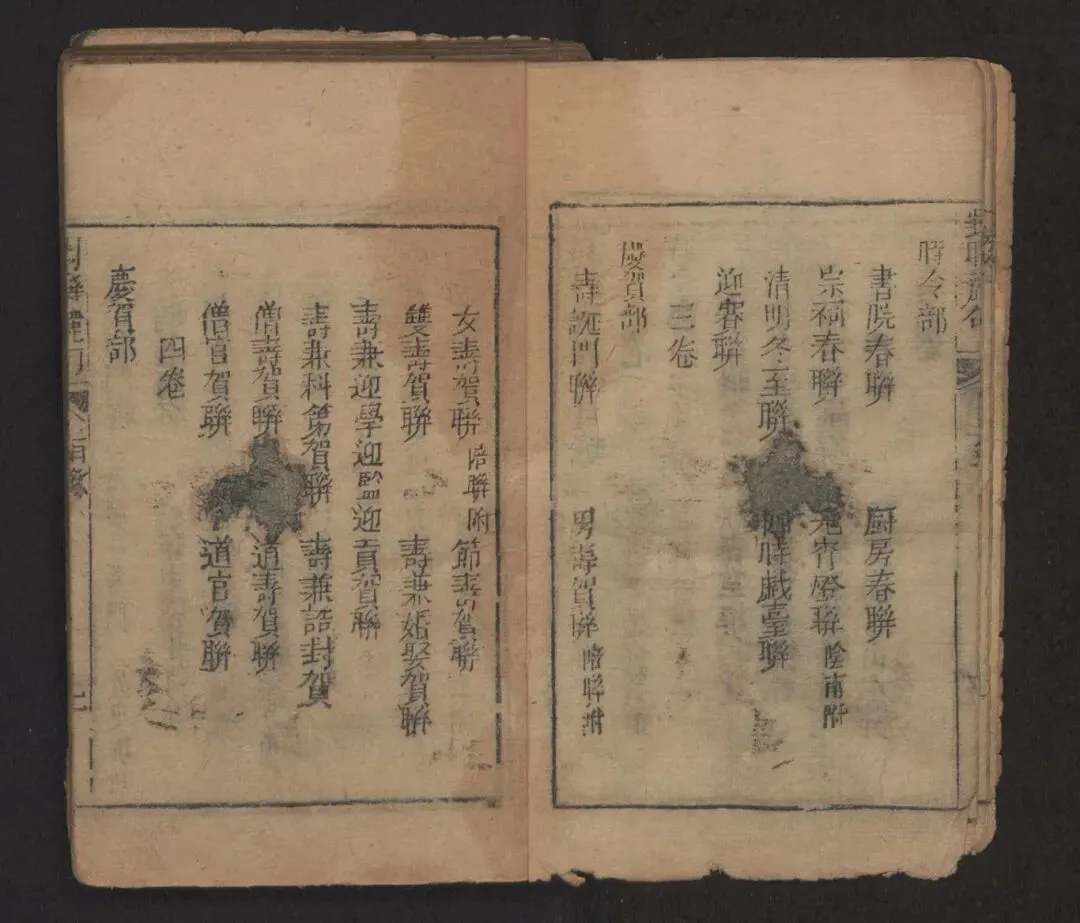 時令部
書院春聯 厨房春聯
宗祠春聯 元宵燈聯 陰南附
清明冬至聯 四時戯臺聯
迎賽聯
三卷
慶賀部
壽誕門聯 男壽賀聯 陪聯附
女壽賀聯 陪聯附 節壽賀聯
雙壽賀聯 壽兼婚娶賀聯
壽兼迎學迎監迎貢賀聯
壽兼科第賀聯 壽兼誥封賀
僧壽賀聯 道壽賀聯
僧官賀聯 道官賀聯
四卷
慶賀部